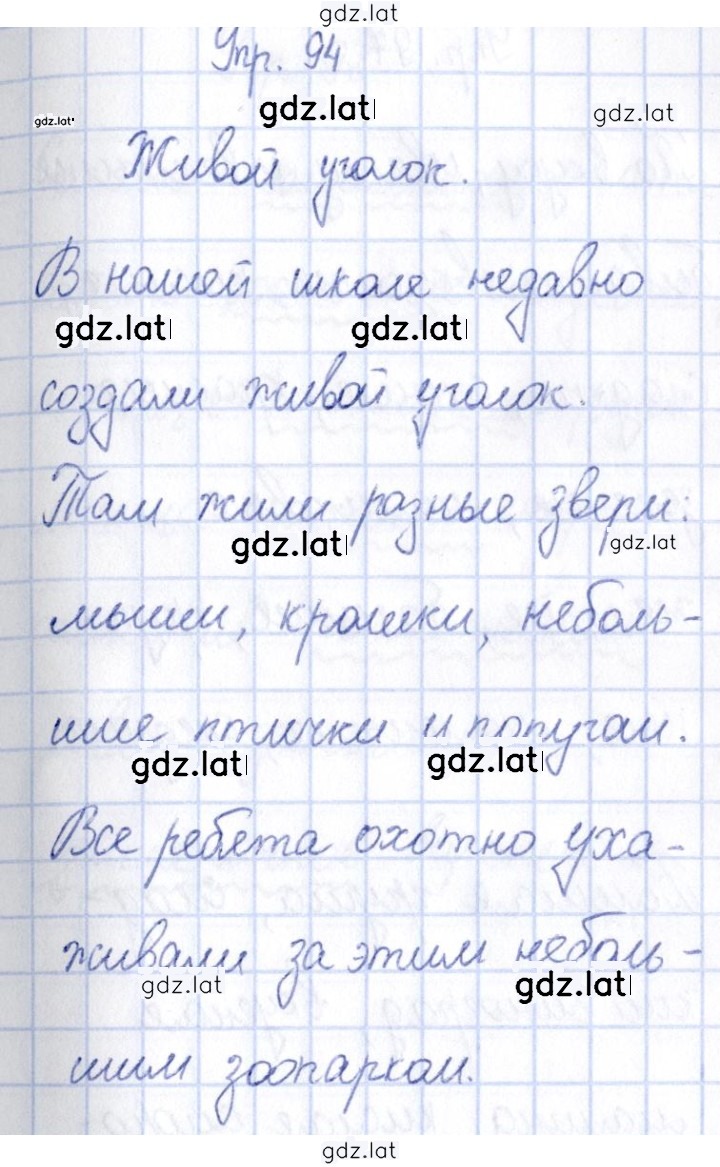 gdz.lat
Упр. 94
gdz.lat
gdz.lat
gdz.lat
Живой уголок.
В нашей школе недавно
gdz.lat
gdz.lat
создали живой уголок.
Там жили разные звери:
gdz.lat
gdz.lat
мыши, крошки, неболь-
шие птички и попугаи.
gdz.lat
gdz.lat
Все ребята охотно уха-
живали за этим неболь-
gdz.lat
gdz.lat
шим зоопарком.
gdz.lat